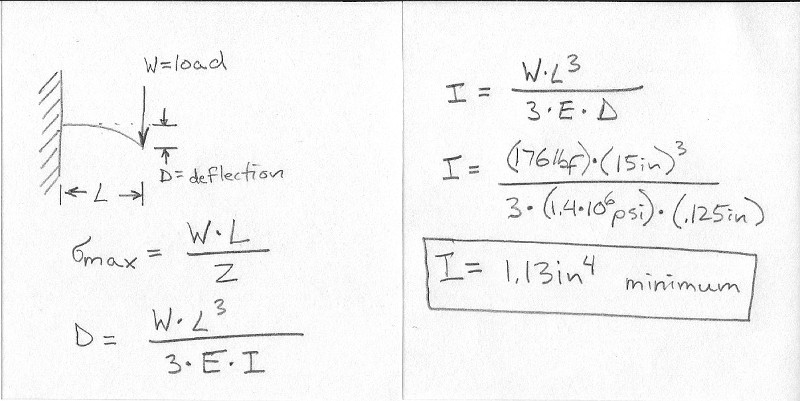 W=load
D=deflection
L
σmax = W·L / Z
D = W·L³ / 3·E·I
I = W·L³ / 3·E·D
I = (176lbf)·(15in)³ / 3·(1.4·10⁶psi)·(.125in)
I = 1.13in⁴ minimum